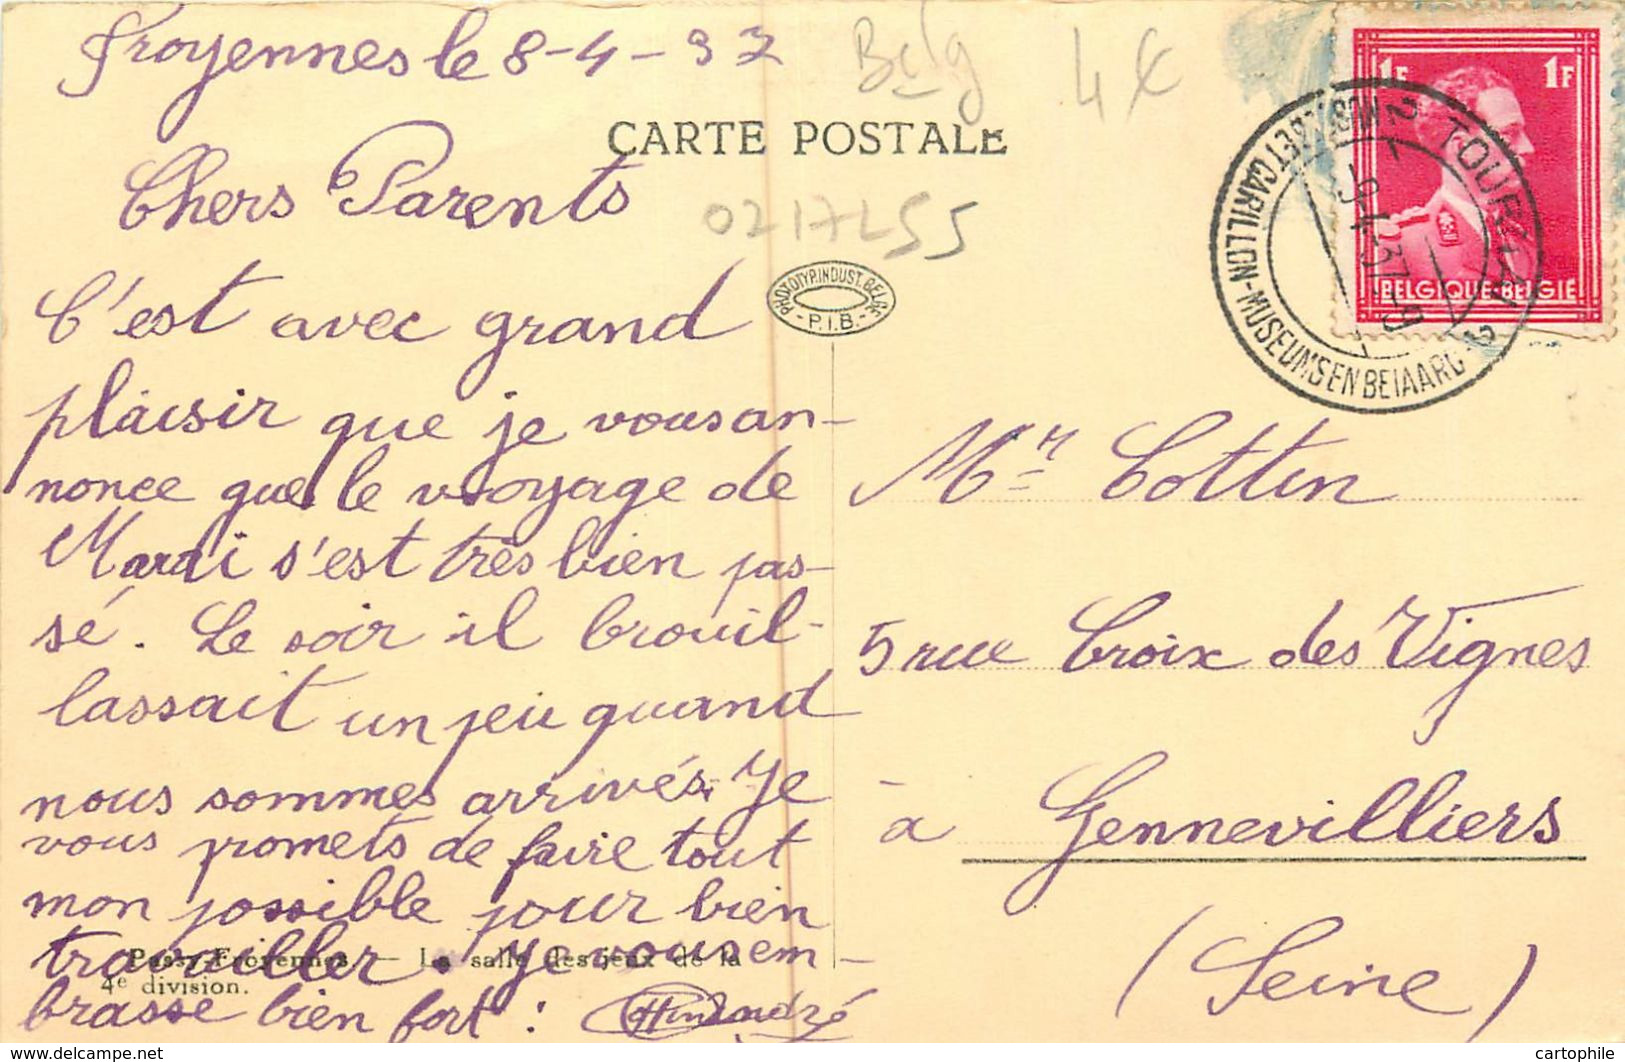 Froyennes le 8-4-37
Belg 4 €
CARTE POSTALE
0217LS5
Chers Parents
C'est avec grand
plaisir que je vous an-
nonce que le voyage de
Mardi s'est très bien pas-
sé. Le soir il brouil-
lassait un peu quand
nous sommes arrivés. Je
vous promets de faire tout
mon possible pour bien
travailler. Je vous em-
brasse bien fort :
Passy-Froyennes — La salle des jeux de la
4e division.
PHOTOTYP. INDUST. BELGE
- P.I.B. -
1F 1F
BELGIQUE-BELGIE
2 TOURNAI 2
9-4-37
ET CARILLON-MUSEUMS EN BEIAARD
Mr Cottin
5 rue Croix des Vignes
à Gennevilliers
(Seine)
cartophile